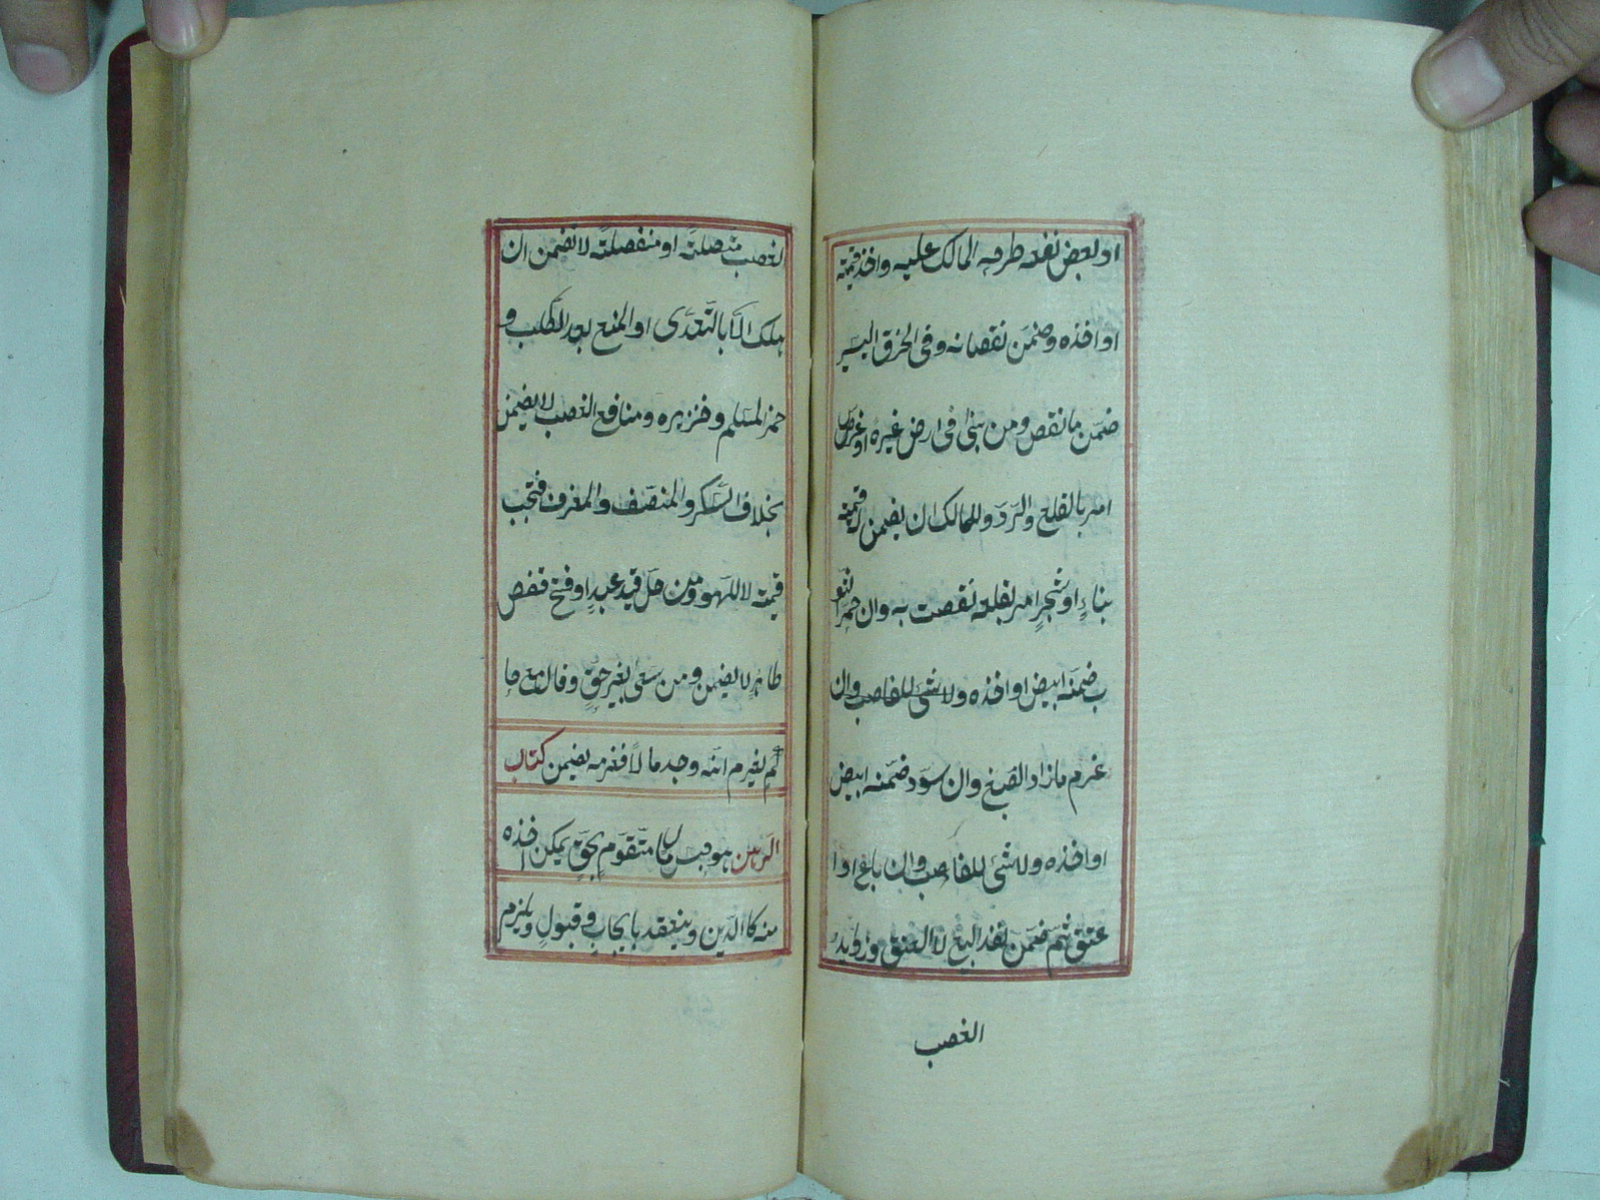 او بعض نفعه طرحه المالك عليه واخذ قيمته
او اخذه وضمّن نقصانه وفى الخرق اليسير
ضمّن ما نقص ومن بنٰى فى ارض غيره او غرس
امر بالقلع والردّ وللمالك ان يضمن له قيمته
بناءٍ او شجرٍ امر بقلعه نقصت به وان حمر الثو
ب ضمّنه ابيض او اخذه ولا شئ للغاصب وان
غرم ما زاد الصبغ وان سوّد ضمّنه ابيض
او اخذه ولا شئ للغاصب وان باع او ا
عتق ثم ضمّن نفذ البيع لا العتق وزوايد
الغصب
لغصب متصلةً او منفصلةً لا تضمن ان
هلك الّا بالتّعدّى او المنع بعد الطّلب و
خمر المسلم وخنزيره ومنافع الغصب لا يضمن
بخلاف السّكر والمنصّف والمعزف فتجب
قيمته لا للهو ومن حلّ قيد عبدٍ او فتح قفص
طائرٍ لا يضمن ومن سعى بغير حقٍّ وقال مع حا
كمٍ يغرم انّه وجد مالًا فغرمه يضمن كتاب
الرّهن هو حبس مالٍ متقوّمٍ بحقٍّ يمكن اخذه
منه كالدّين وينعقد بايجابٍ وقبولٍ ويلزم